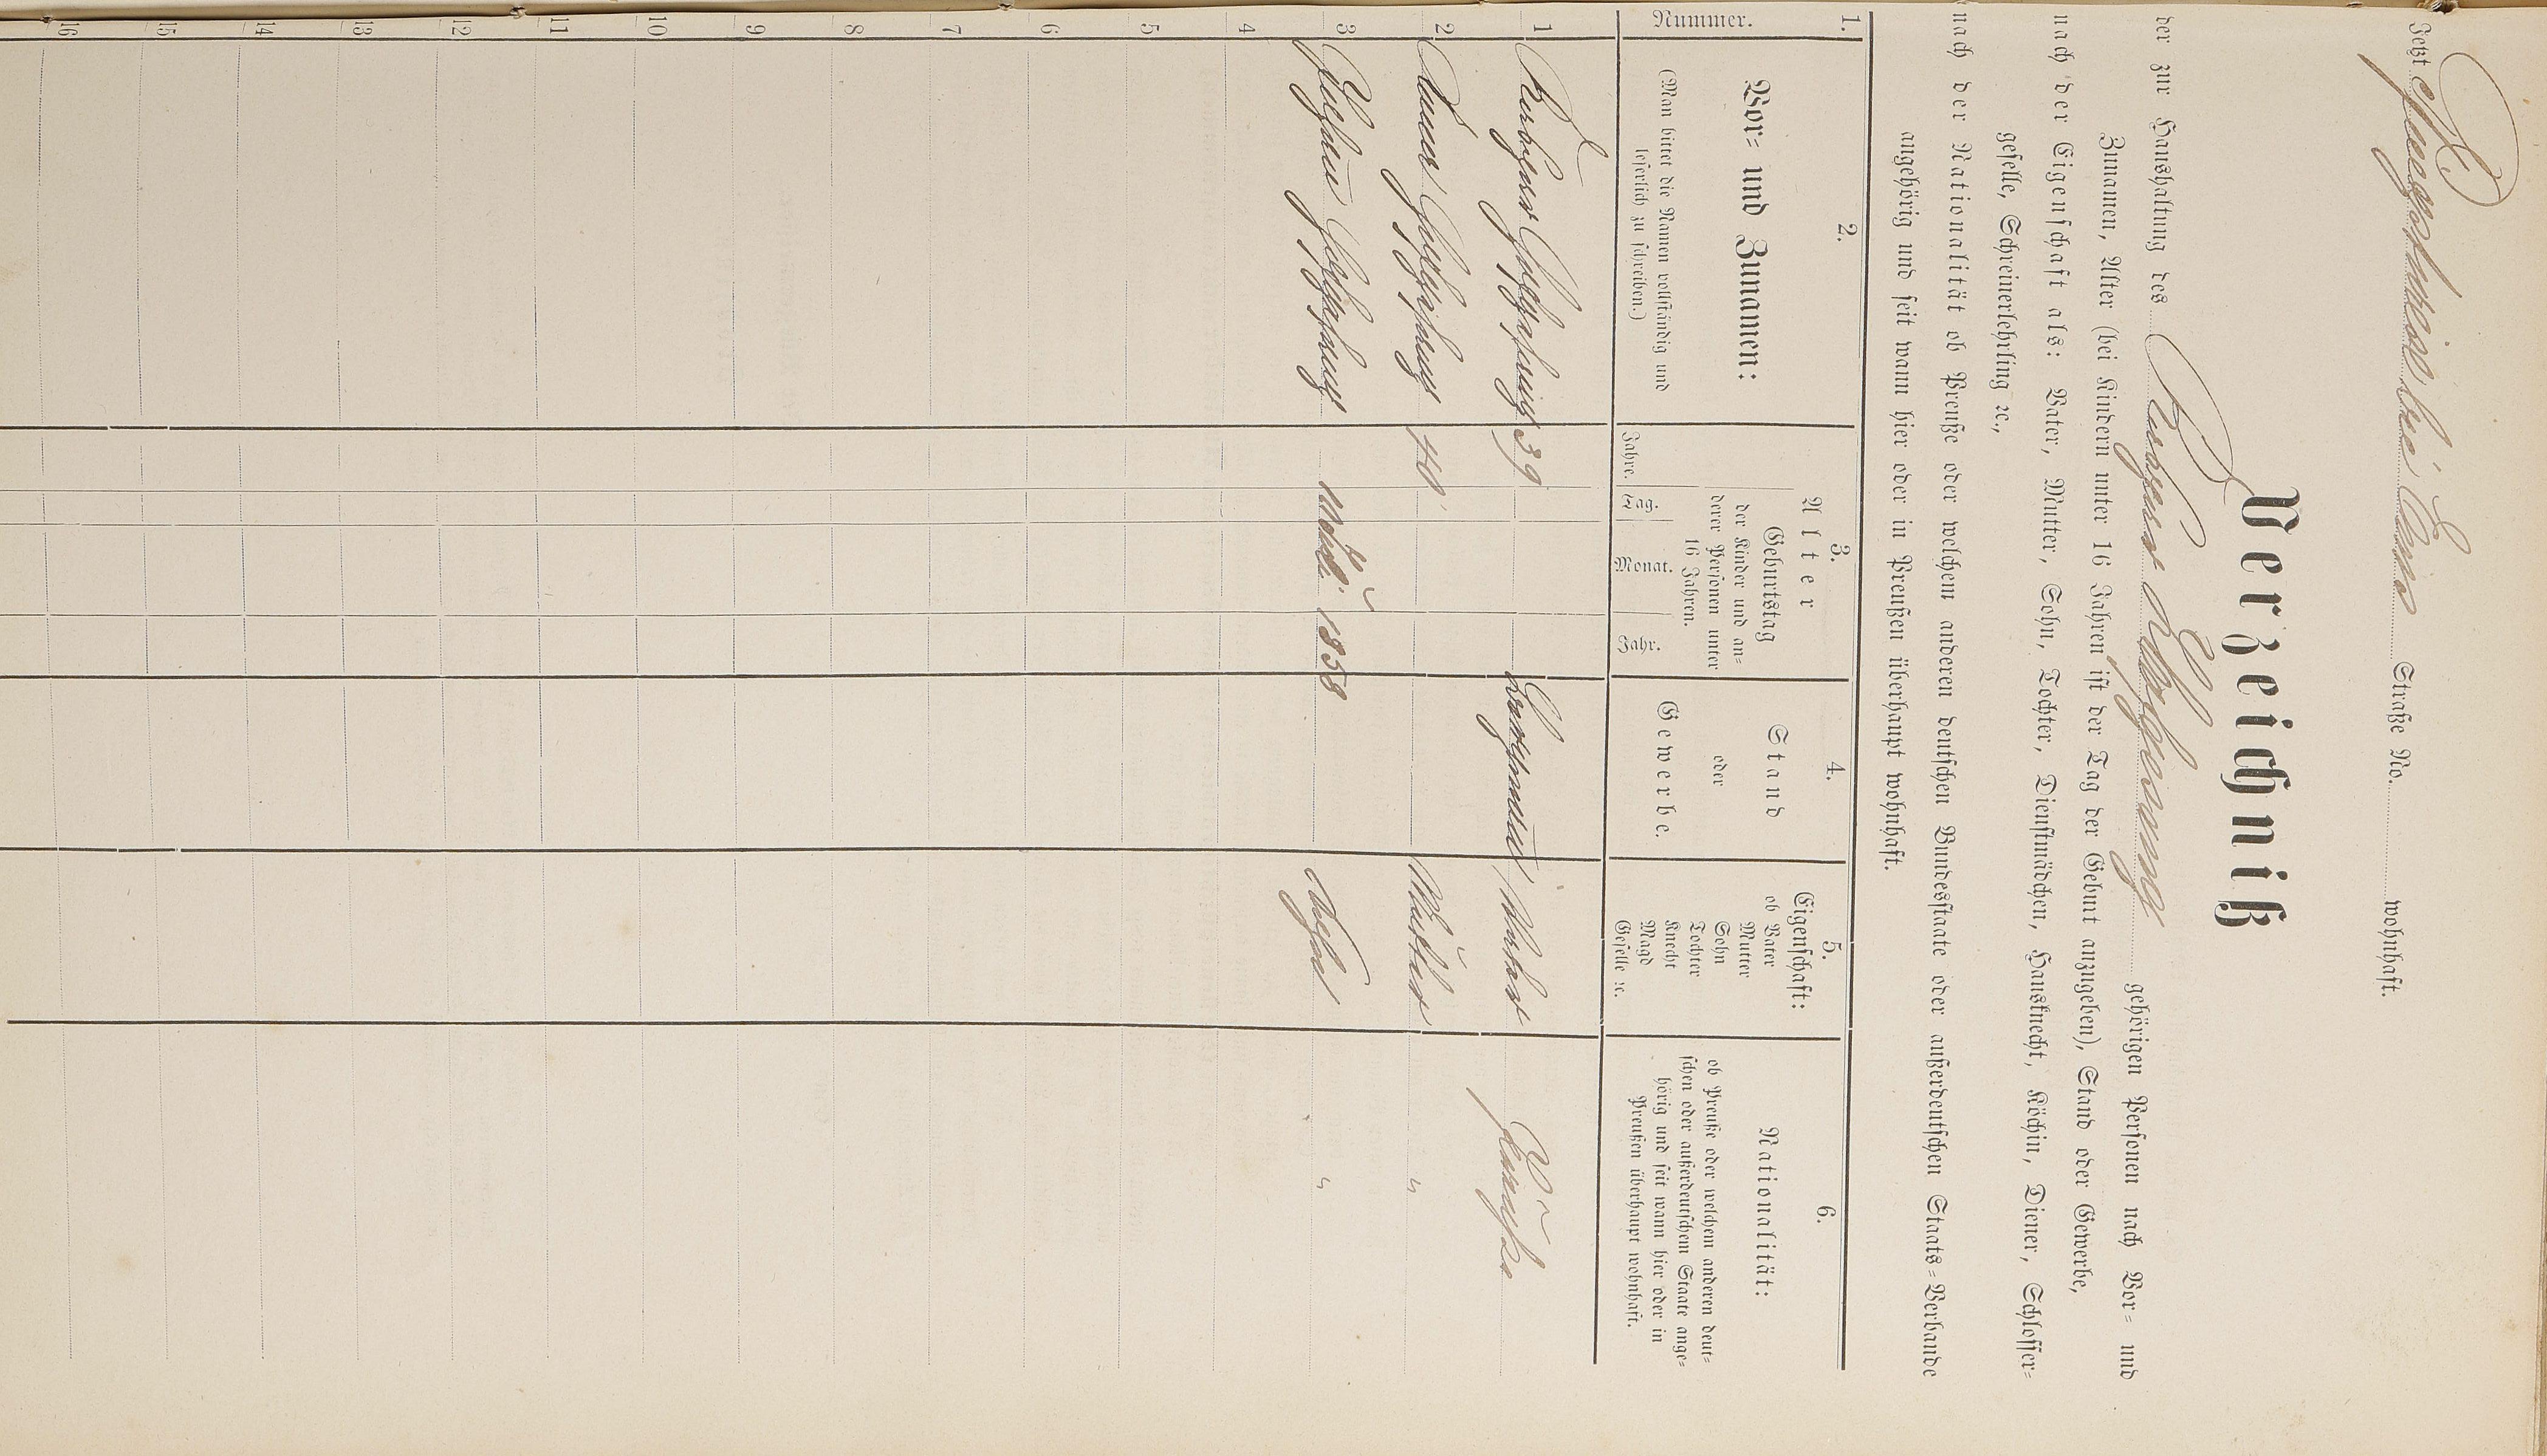 Jetzt Straße No. wohnhaft.
Verzeichniß
der zur Haushaltung des gehörigen Personen nach Vor- und
Zunamen, Alter (bei Kindern unter 16 Jahren ist der Tag der Geburt anzugeben), Stand oder Gewerbe,
nach der Eigenschaft als: Vater, Mutter, Sohn, Tochter, Dienstmädchen, Hausknecht, Köchin, Diener, Schlosser-
geselle, Schreinerlehrling ꝛc.,
nach der Nationalität ob Preuße oder welchem anderen deutschen Bundesstaate oder außerdeutschen Staats-Verbande
angehörig und seit wann hier oder in Preußen überhaupt wohnhaft.
1.
Nummer.
2.
Vor- und Zunamen:
(Man bittet die Namen vollständig und
leserlich zu schreiben.)
3.
Alter
Jahre.
Geburtstag
der Kinder und an-
derer Personen unter
16 Jahren.
Tag. Monat. Jahr.
4.
Stand
oder
Gewerbe.
5.
Eigenschaft:
ob Vater
Mutter
Sohn
Tochter
Knecht
Magd
Geselle ꝛc.
6.
Nationalität:
ob Preuße oder welchem anderen deut-
schen oder außerdeutschem Staate ange-
hörig und seit wann hier oder in
Preußen überhaupt wohnhaft.
1 39 Vater Preuße
2 40 Mutter "
3 1858 Sohn "
4
5
6
7
8
9
10
11
12
13
14
15
16